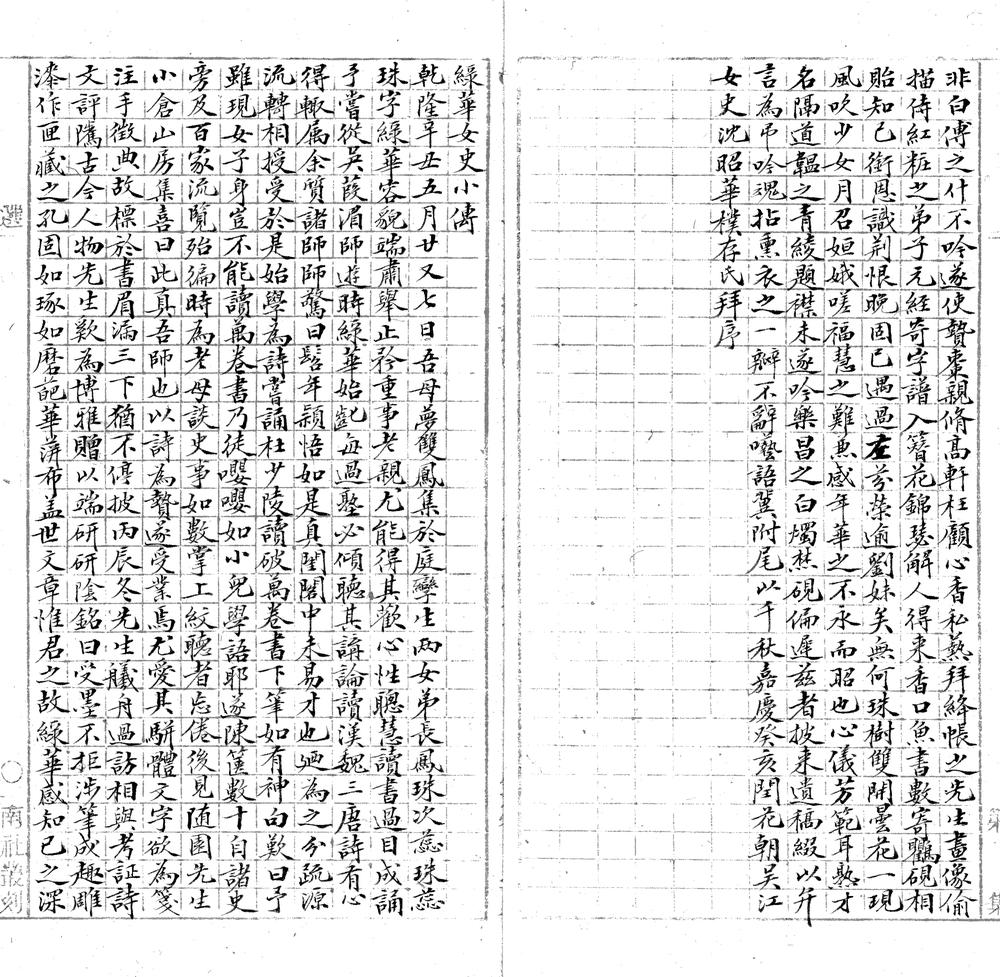 非白傅之什不吟遂使贄棗親脩高軒枉顧心香私爇拜絳帳之先生畫像偷
描侍紅粧之弟子元經奇字譜入簪花錦瑟解人得来香口魚書數寄鸜硯相
貽知己銜恩識荆恨晚固已遇過左芬榮逾劉妹矣無何珠樹雙開曇花一現
風吹少女月召姮娥嗟福慧之難兼感年華之不永而昭也心儀芳範耳熟才
名隔道韞之青綾題襟未遂吟樂昌之白燭焚硯偏遲兹者披来遺稿綴以弁
言為弔吟魂拈熏衣之一瓣不辭囈語冀附尾以千秋嘉慶癸亥閏花朝吴江
女史沈昭華樸存氏拜序
綠華女史小傳
乾隆辛丑五月廿又七日吾母夢雙鳳集於庭孿生兩女弟長鳳珠次蕊珠蕊
珠字綠華容貌端肅舉止矜重事老親尤能得其歡心性聰慧讀書過目成誦
予嘗從吴葭湄師遊時綠華始齔每過塾必傾聽其講論讀漢魏三唐詩有心
得輒属余質諸師師驚曰髫年穎悟如是真閨閤中未易才也廼為之分疏源
流轉相授受於是始學為詩嘗誦杜少陵讀破萬卷書下筆如有神句歎曰予
雖現女子身豈不能讀萬卷書乃徒嚶嚶如小兒學語耶遂陳篋數十自諸史
旁及百家流覽殆徧時為老母談史事如數掌上紋聽者忘倦後見随園先生
小倉山房集喜曰此真吾師也以詩為贄遂受業焉尤愛其駢體文字欲為箋
注手徵典故標於書眉漏三下猶不停披丙辰冬先生艤舟過訪相與考証詩
文評隲古今人物先生歎為博雅贈以端研研陰銘曰受墨不拒涉筆成趣雕
漆作匣藏之孔固如琢如磨葩華荓布盖世文章惟君之故綠華感知己之深
選
南社叢刻
第
集